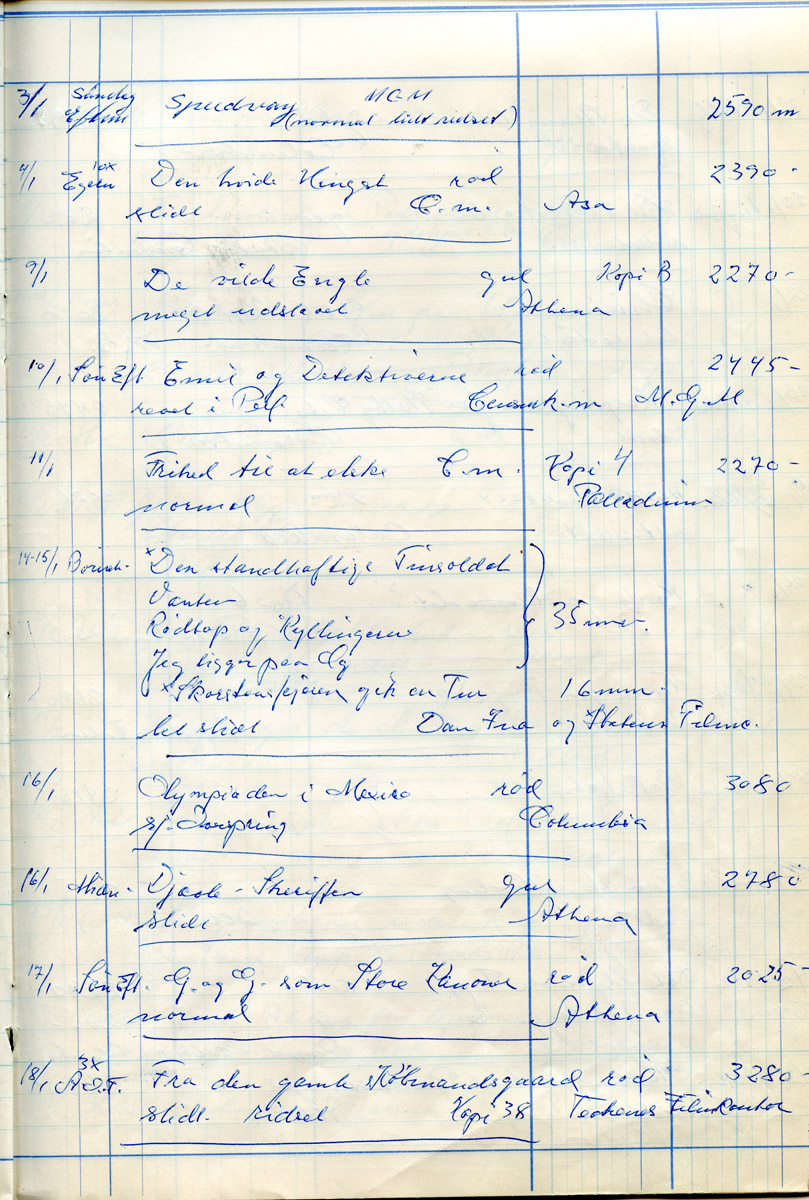 3/1 Søndag Speedway MGM 2590 m
Efterm (normal lidt ridset)
4/1 Egen 10x Den hvide Hingst rød 2390 -
slidt C.m. Asa
9/1 De vilde Engle gul Kopi B 2270 -
meget udslavet Athena
10/1 Søn Eft. Emil og Detektiverne rød 2445 -
revet i Perf. Censurk.m M.G.M
11/1 Frihed til at elske C.m. Kopi 4 2270 -
normal Palladium
14-15/1 Børneh. × Den standhaftige Tinsoldat
Vanten
Rødtop og Kyllingerne 35 mm.
Jeg ligger paa Og
× Skorstensfejeren gik en Tur 16 mm.
let slidt Dan Ina og × Statens Filmc.
16/1 Olympiaden i Mexico rød 3080
sj. Oversping Columbia
16/1 Djævle-Sheriffen gul 2780
slidt Athena
17/1 Søn Eft. G. og G. som Store Kanoner rød 2025 -
normal Athena
18/1 3x A.O.F. Fra den gamle Købmandsgaard rød 3280 -
slidt ridset Kopi 38 Teatrenes Filmkontor